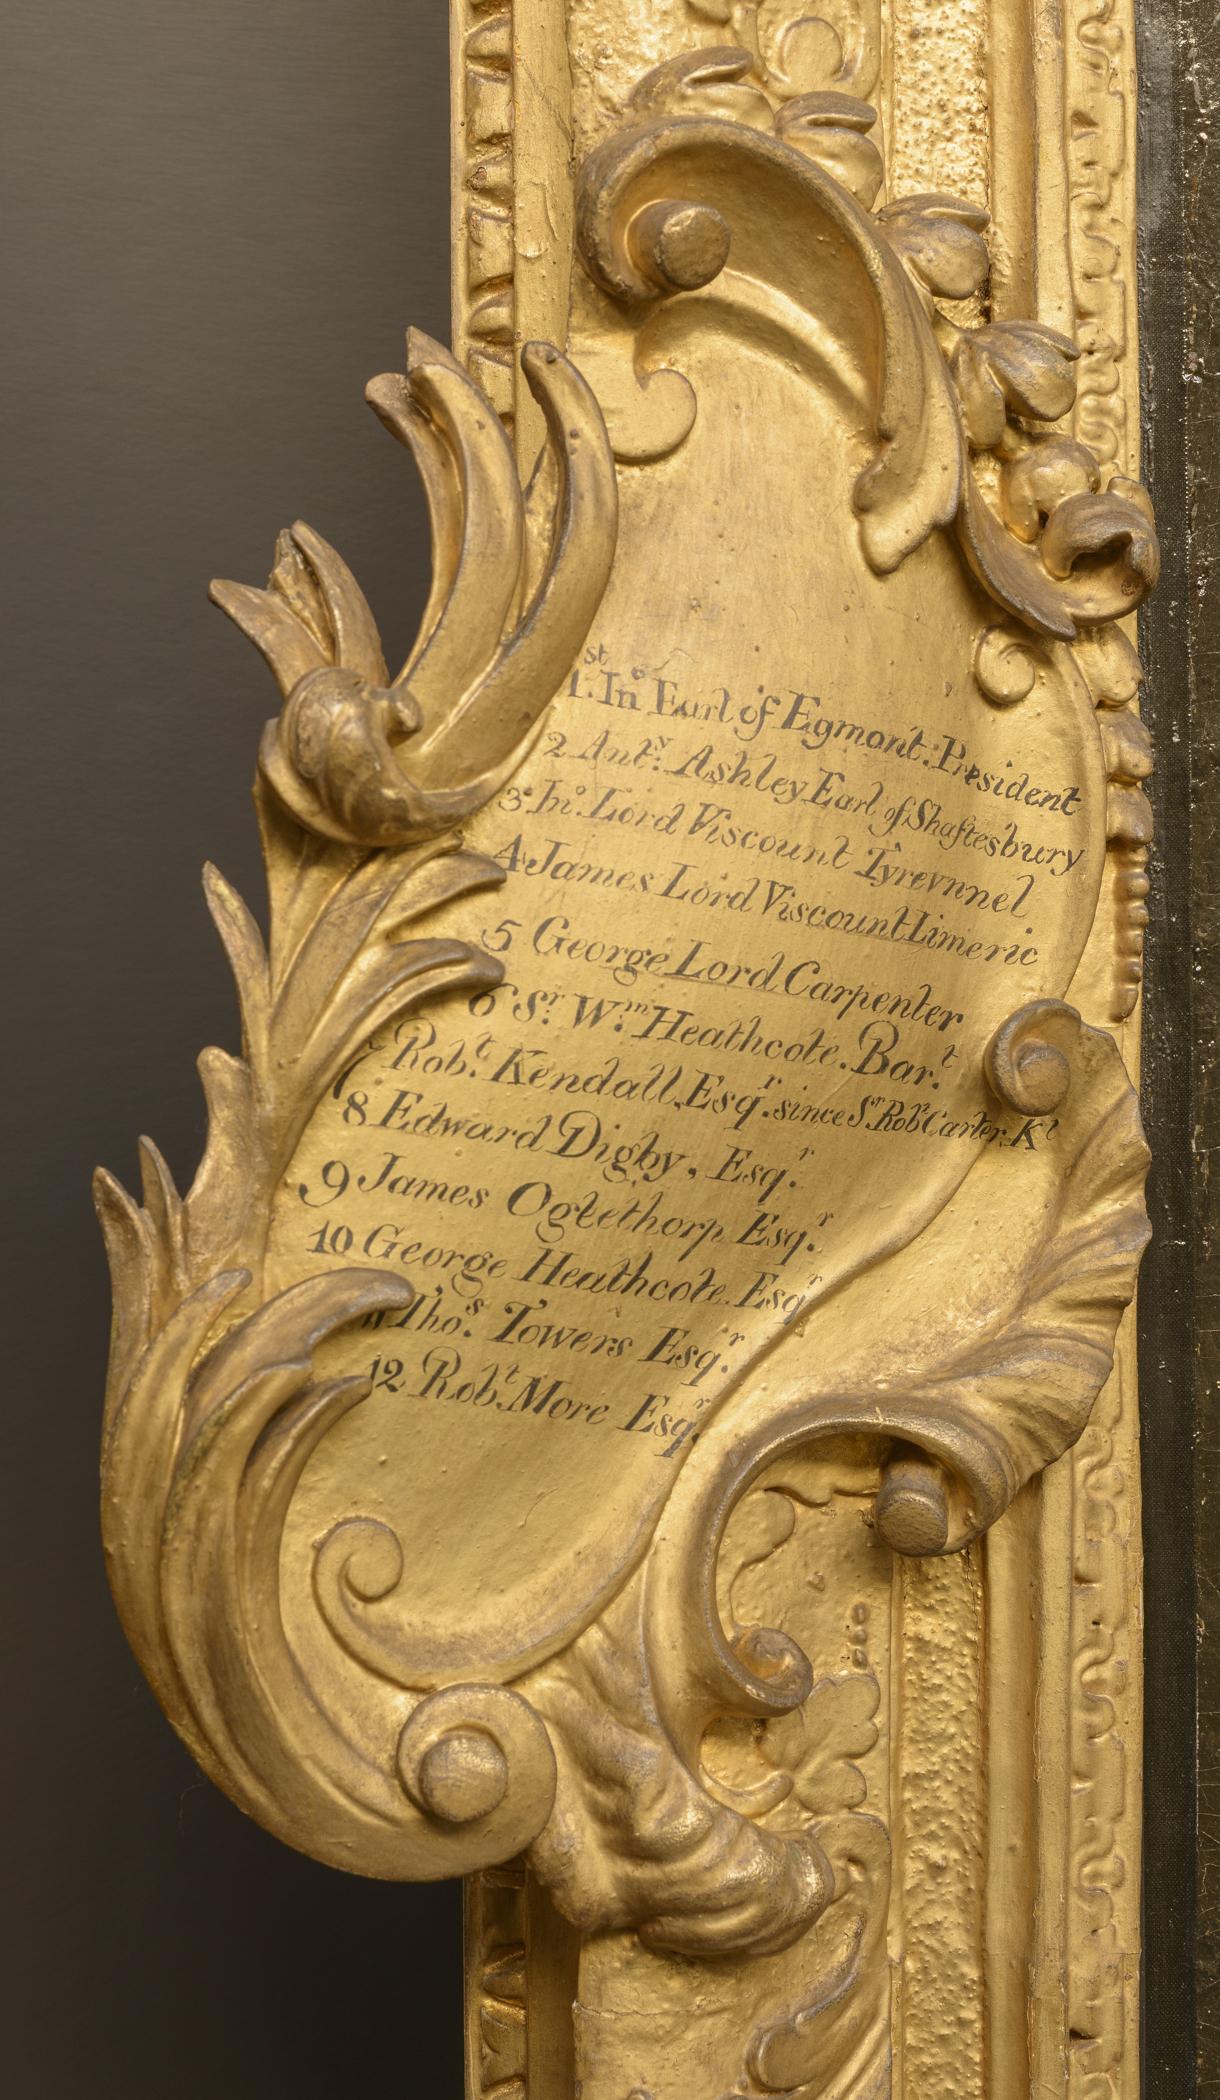 1.st Jn.o Earl of Egmont. President
2 Ant.y Ashley Earl of Shaftesbury
3 Jn.o Lord Viscount Tyrevnnel
4 James Lord Viscount Limeric
5 George Lord Carpenter
6 S.r W.m Heathcote. Bar.t
7 Rob.t Kendall, Esq.r since S.r Rob.t Carter, K.t
8 Edward Digby, Esq.r
9 James Oglethorp Esq.r
10 George Heathcote. Esq.r
11 Tho.s Towers Esq.r
12 Rob.t More Esq.r